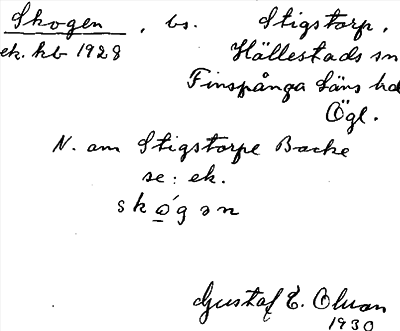 Skogen, bs. Stigstorp,
ek. kb 1928 Hällestads sn
Finspånga läns hd
Ögl.
N. om Stigstorps Backe
se: ek.
skó̲gən
Gustaf E. Olsson
1930